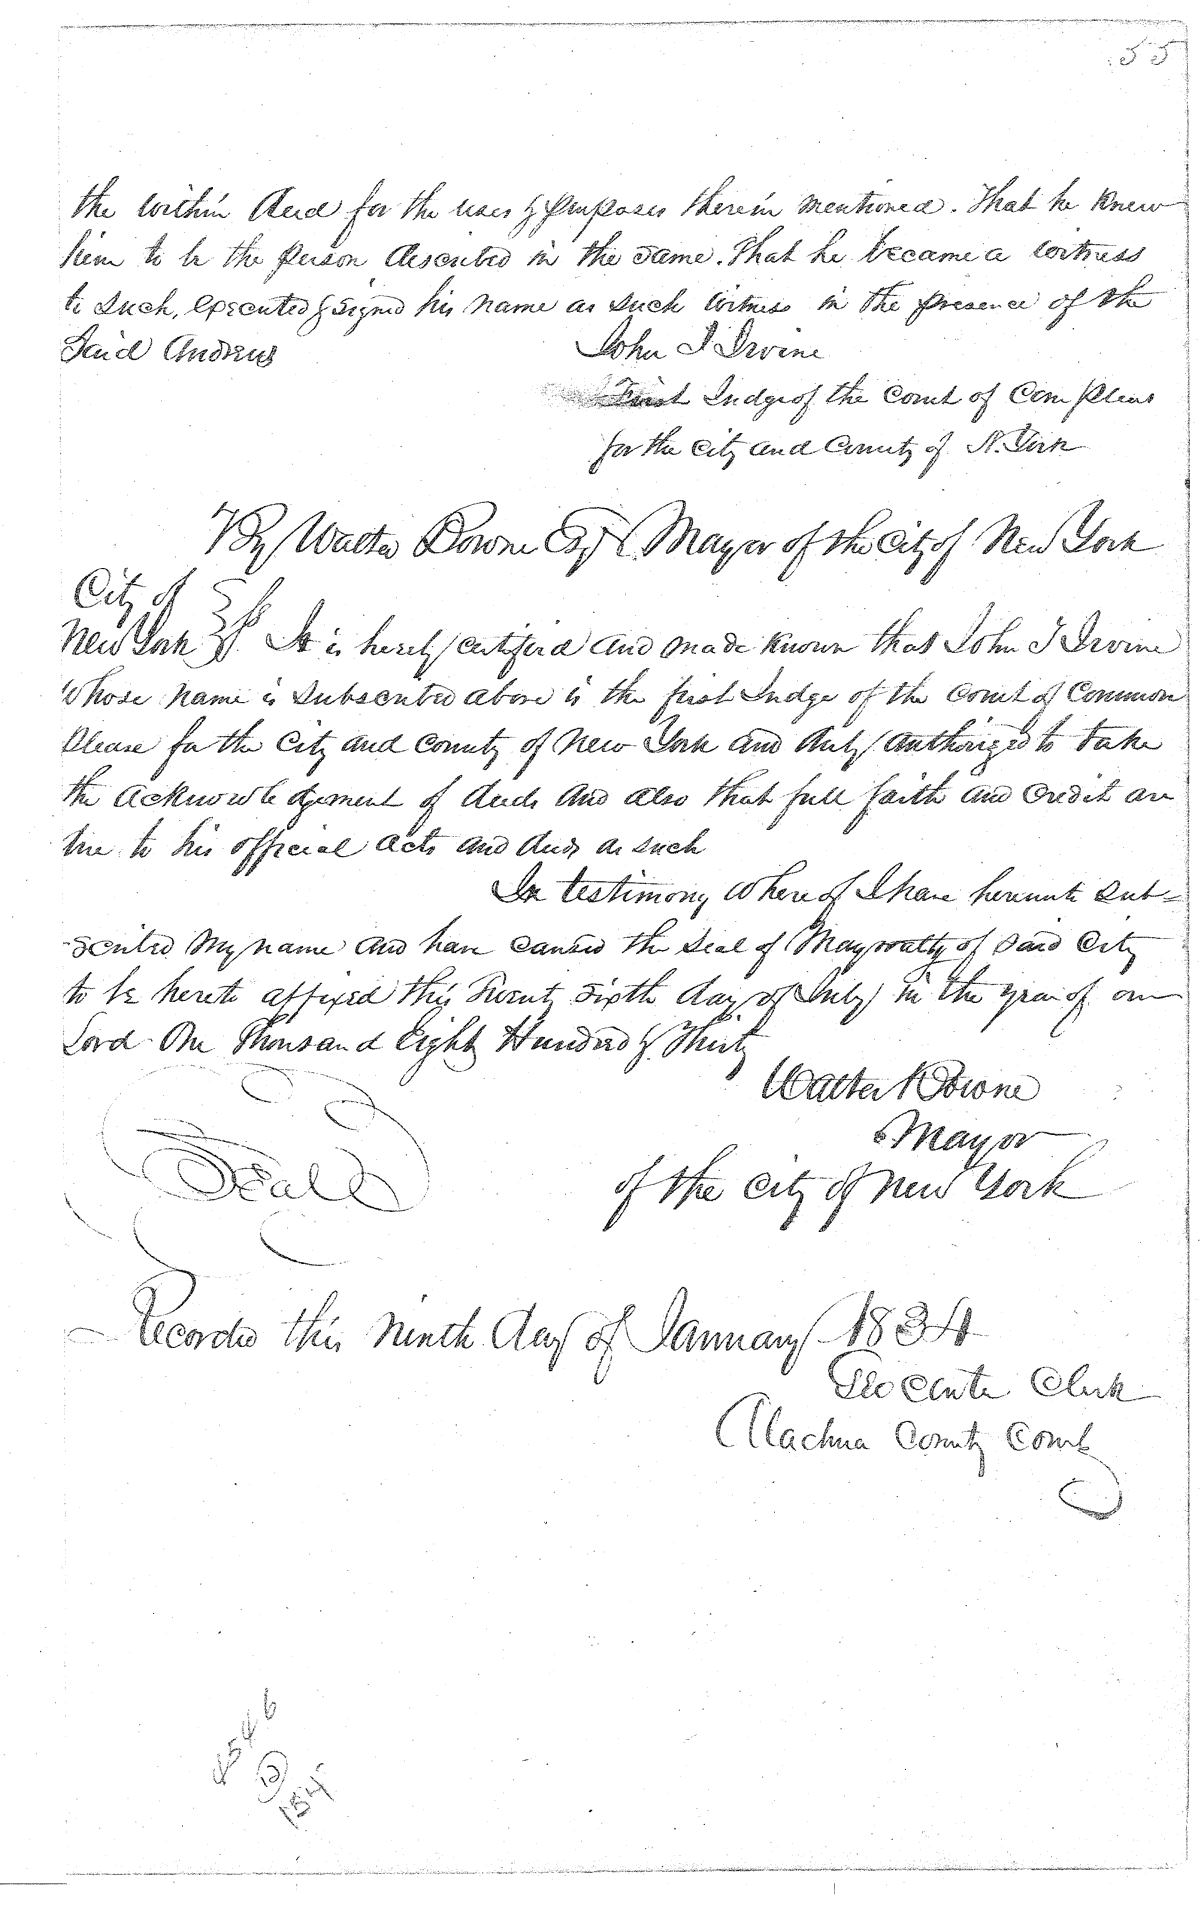 55
the within Deed for the uses & purposes therein mentioned. That he knew
him to be the person described in the same. That he became a witness
to such, executed & signed his name as such witness in the presence of the
Said Andrew
John T Irvine
First Judge of the Court of Com Pleas
for the City and County of N. York
By Walter Bowne Esqr Mayor of the City of New York
City of
New York } Ss. It is hereby certified and made known that John T Irvine
whose name is subscribed above is the first Judge of the Court of Common
Please for the City and County of New York and duly authorized to take
the acknowledgement of deeds and also that full faith and credit are
due to his official acts and deeds as such
In testimony whereof I have hereunto sub=
scribed my name and have caused the seal of Mayoralty of said City
to be hereto affixed this Twenty sixth day of July in the year of our
Lord One Thousand Eight Hundred & Thirty
Walter Bowne
Mayor
Seal
of the City of New York
Recorded this Ninth day of January 1834
Geo Clerk
Alachua County Court